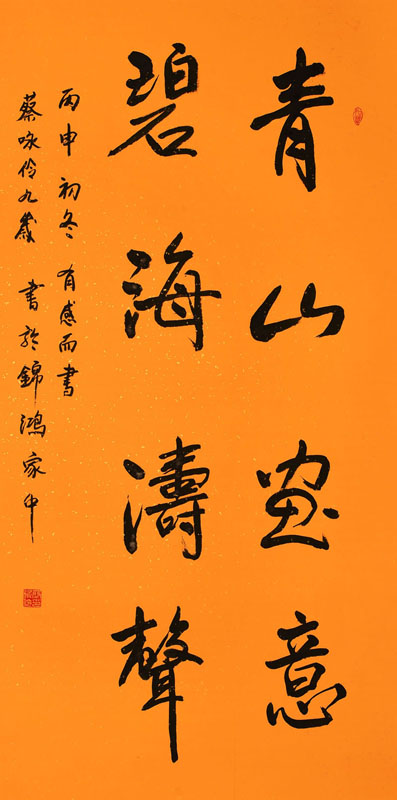 青山画意
碧海濤聲
丙申初冬有感而書
蔡咏伶九歲書於錦鴻家中